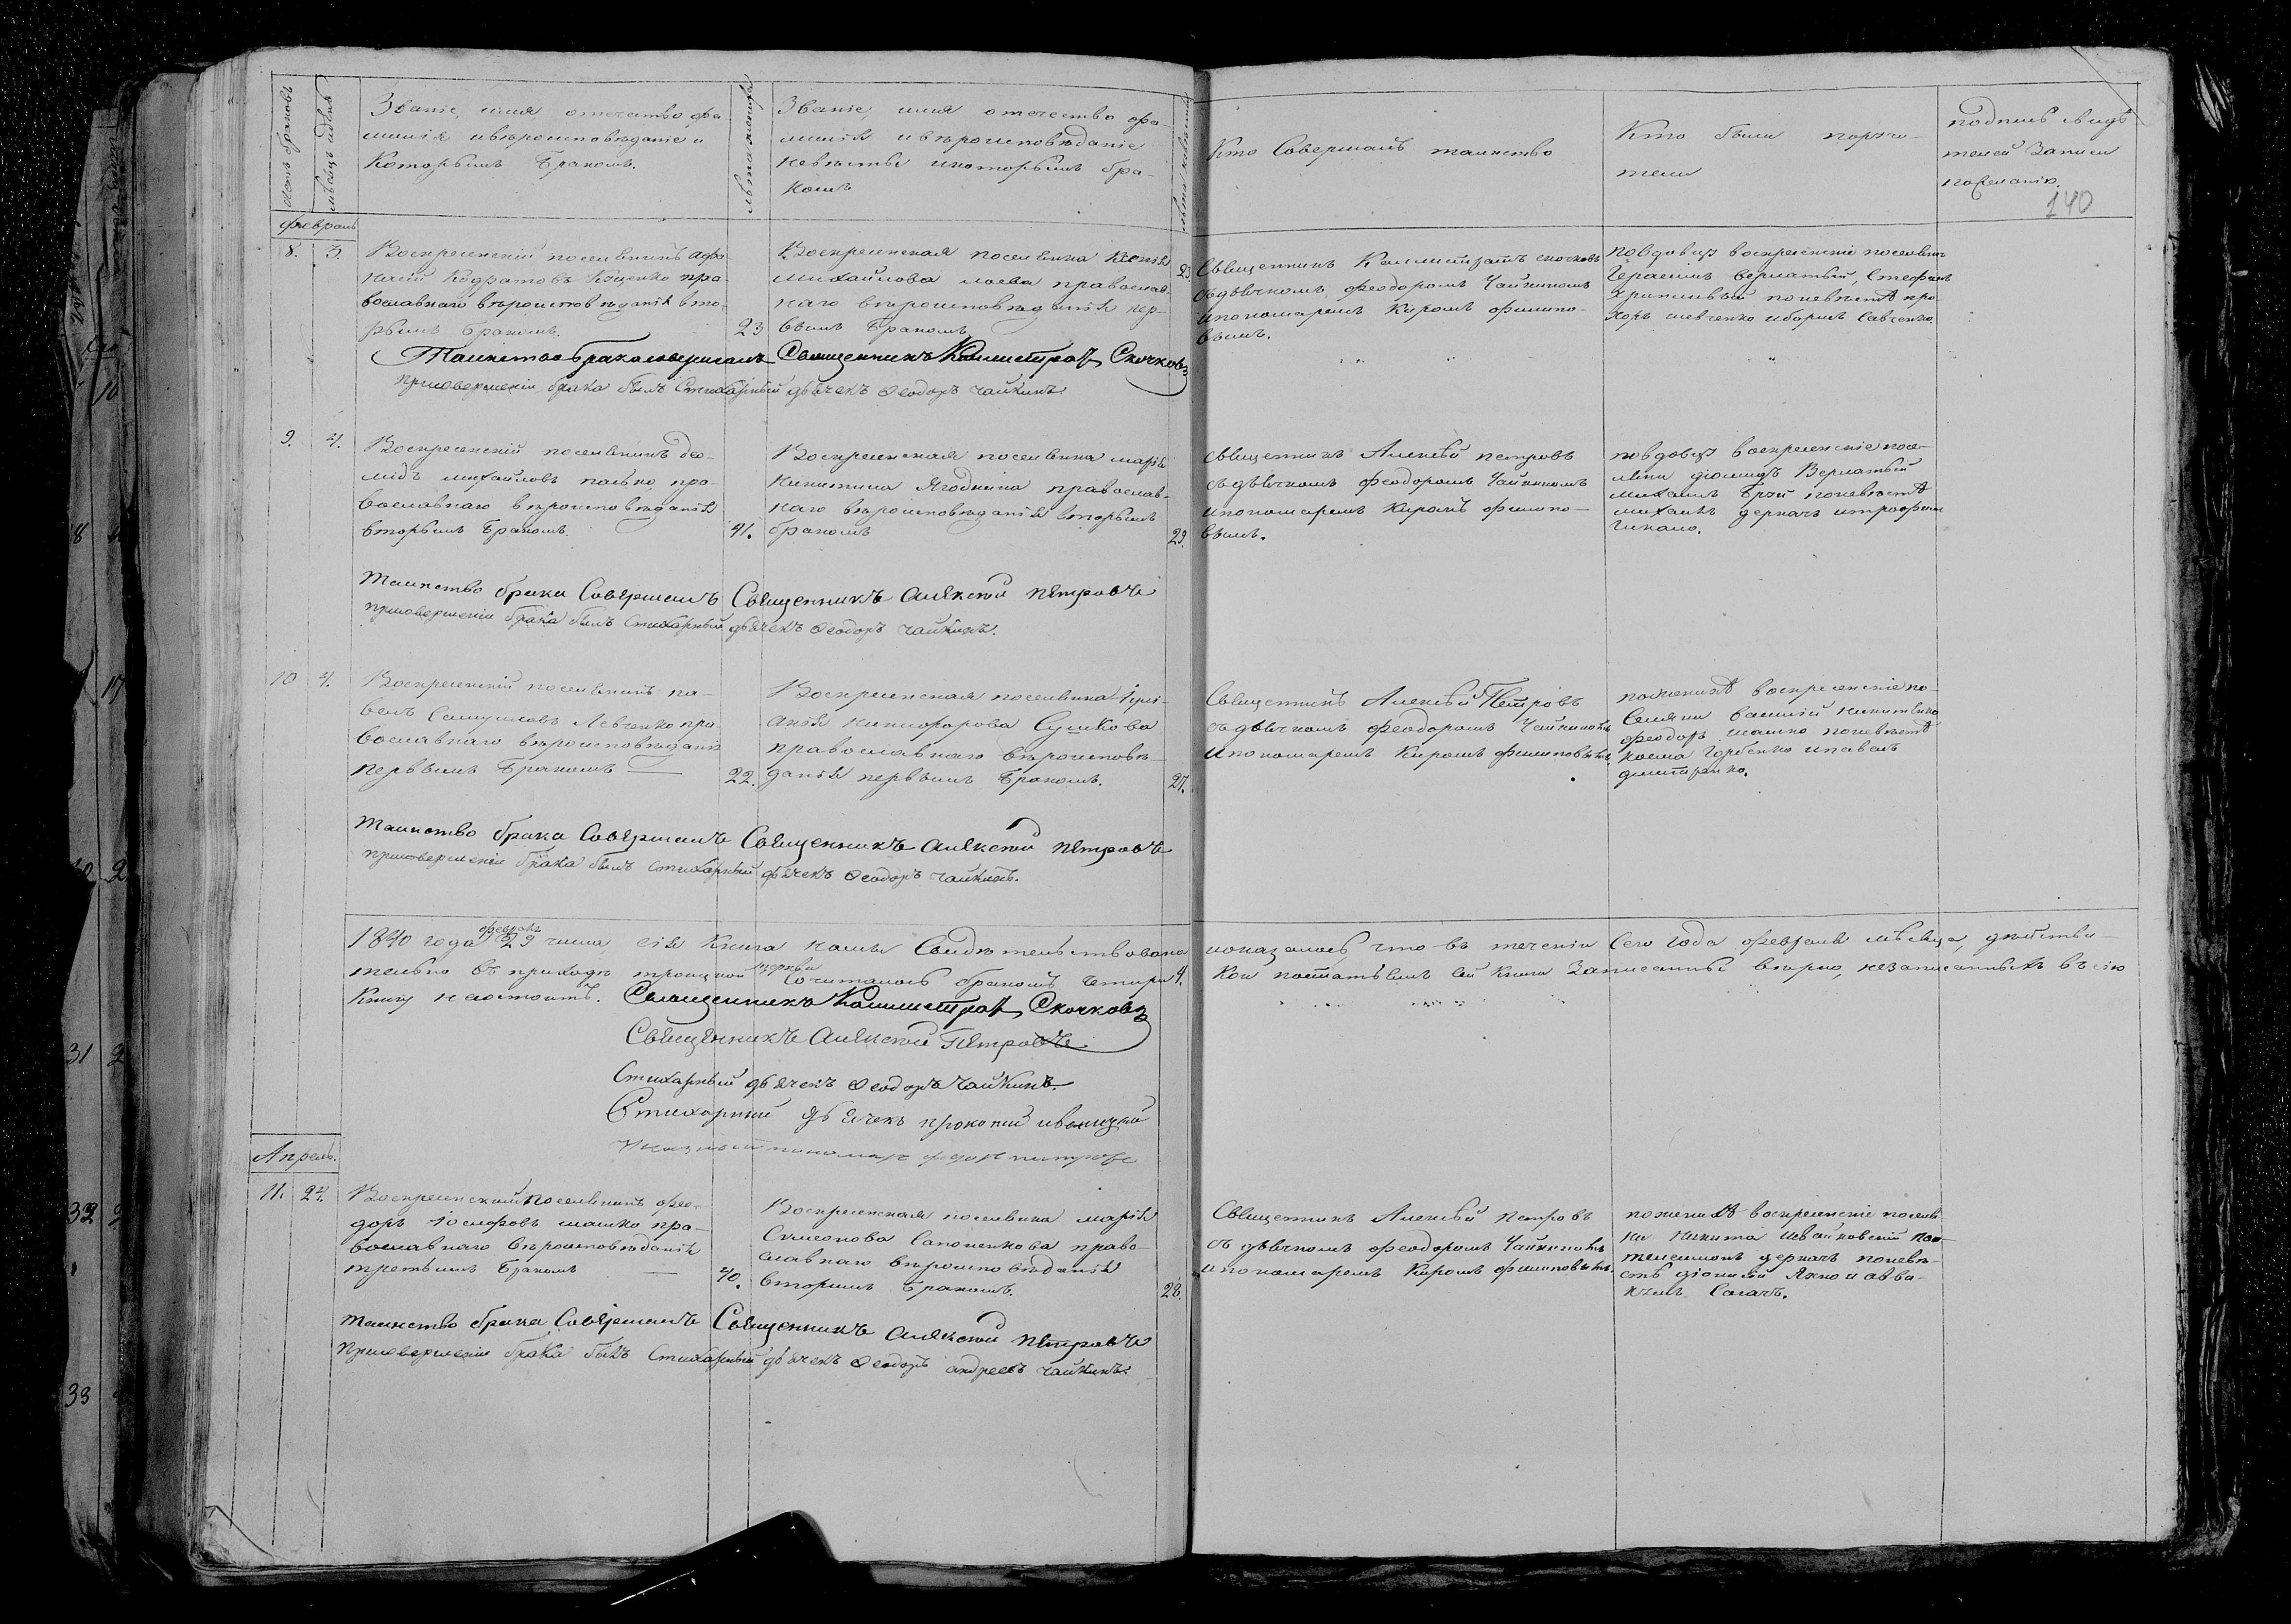 Счетъ браковъ
Мѣсяцъ и день
Званіе, имя отечество фа-
милія и вѣроисповѣданіе и
Которымъ бракомъ.
Лѣта жениха
Званіе, имя отечество фа-
милія и вѣроисповѣданіе
невѣсты и которымъ бра-
комъ
Лѣта невѣсты
Кто Совершалъ таинство
Кто были поручи-
тели
подпись свидѣ
телей записи
по желанію.
140
Февраль
8. 3.
Воскресенскій поселянинъ Афа-
насій Кодратовъ пра
вославнаго вѣроисповѣданія вто-
рымъ бракомъ.
23
Воскресенская поселянка Ксенія
Михайлова православ-
наго вѣроисповѣданія пер-
вымъ бракомъ
23
Священникъ Каллистратъ Скочковъ
съ дьячкомъ Феодоромъ Чайкиномъ
и пономаремъ Киромъ Филипо-
вымъ.
по вдовцѣ воскресенскіе поселяни
Герасимъ Стефанъ
по невѣстѣ про-
хоръ шевченко и борисъ Савченко
Таинство брака совершалъ Священникъ Каллистратъ Скочковъ
при совершеніи брака былъ Стихарный дьячекъ Ѳеодоръ чайкинъ.
9. 4.
Воскресенскій поселянинъ Део-
мидъ михайловъ палько пра-
вославнаго вѣроисповѣданія
вторымъ бракомъ.
41.
Воскресенская поселянка марія
Никитина Ягодкина православ-
наго вѣроисповѣданія вторымъ
бракомъ
29.
священникъ Алексѣй петровъ
съ дьячкомъ Феодоромъ Чайкиномъ
и пономаремъ Киромъ Филипо-
вымъ.
по вдовцѣ воскресенскіе посе-
ляни діомидъ
михаилъ по невѣстѣ
михаилъ деркачь и трофим
Таинство брака Совершалъ Священникъ Алексей Петровъ
при совершеніи брака былъ Стихарный дьячекъ Ѳеодоръ чайкинъ.
10 4.
Воскресенскій поселянинъ па-
велъ Самуиловъ Левченко пра-
вославнаго вѣроисповѣданія
первымъ бракомъ —
22.
Воскресенская поселянка Іулі-
анія никифорова Сушкова
православнаго вѣроисповѣ-
данія первымъ бракомъ.
27.
Священникъ Алексѣй Петровъ
съ дьячкомъ Феодоромъ Чайкиномъ
и пономаремъ Киромъ Филиповымъ.
по женихѣ воскресенскіе по-
селяни василій никитенко
феодоръ машко по невѣстѣ
косма Горбенко и павелъ
дмитренко.
Таинство брака Совершалъ Священникъ Алексей Петровъ
при совершеніи брака былъ стихарный дьячекъ Ѳеодоръ чайкинъ.
февраля
1840 года 29 числа, сія Книга нами Свидѣтельствована показалось что въ теченіи Сего Года Февраля мѣсяца, дѣйстви-
тельно въ приходѣ троицкой церкви Сочиталось бракомъ четыри 4. Кои по статьямъ сей Книги Записанные вѣрно, незаписанныхъ въ сію
Книгу не состоитъ. Священникъ Каллистратъ Скочковъ
Священникъ Алексей Петровъ
Стихарный дьячекъ Ѳеодоръ Чайкинъ.
Стихарный дьячекъ прокопий
пономарь петровъ
Апрель.
11. 24.
Воскресенскій поселянинъ Фео-
доръ Іосифовъ машко пра-
вославнаго вѣроисповѣданія
третьимъ бракомъ —
40.
Воскресенская поселянка марія
Симеонова Сапоненкова право-
славнаго вѣроисповѣданія
вторымъ бракомъ.
28.
Священникъ Алексѣй петровъ
съ дьячкомъ Феодоромъ Чайкинымъ
и пономаремъ Киромъ Филиповымъ.
по женихѣ воскресенскіе поселя
ни Никита пан-
телеимонъ деркачь по невѣ-
стѣ діонисій Яхно и авва-
кумъ Салачъ.
таинство брака Совершалъ Священникъ Алексей Петровъ
при совершеніи брака былъ Стихарный дьячекъ Ѳеодоръ андреевъ чайкинъ.